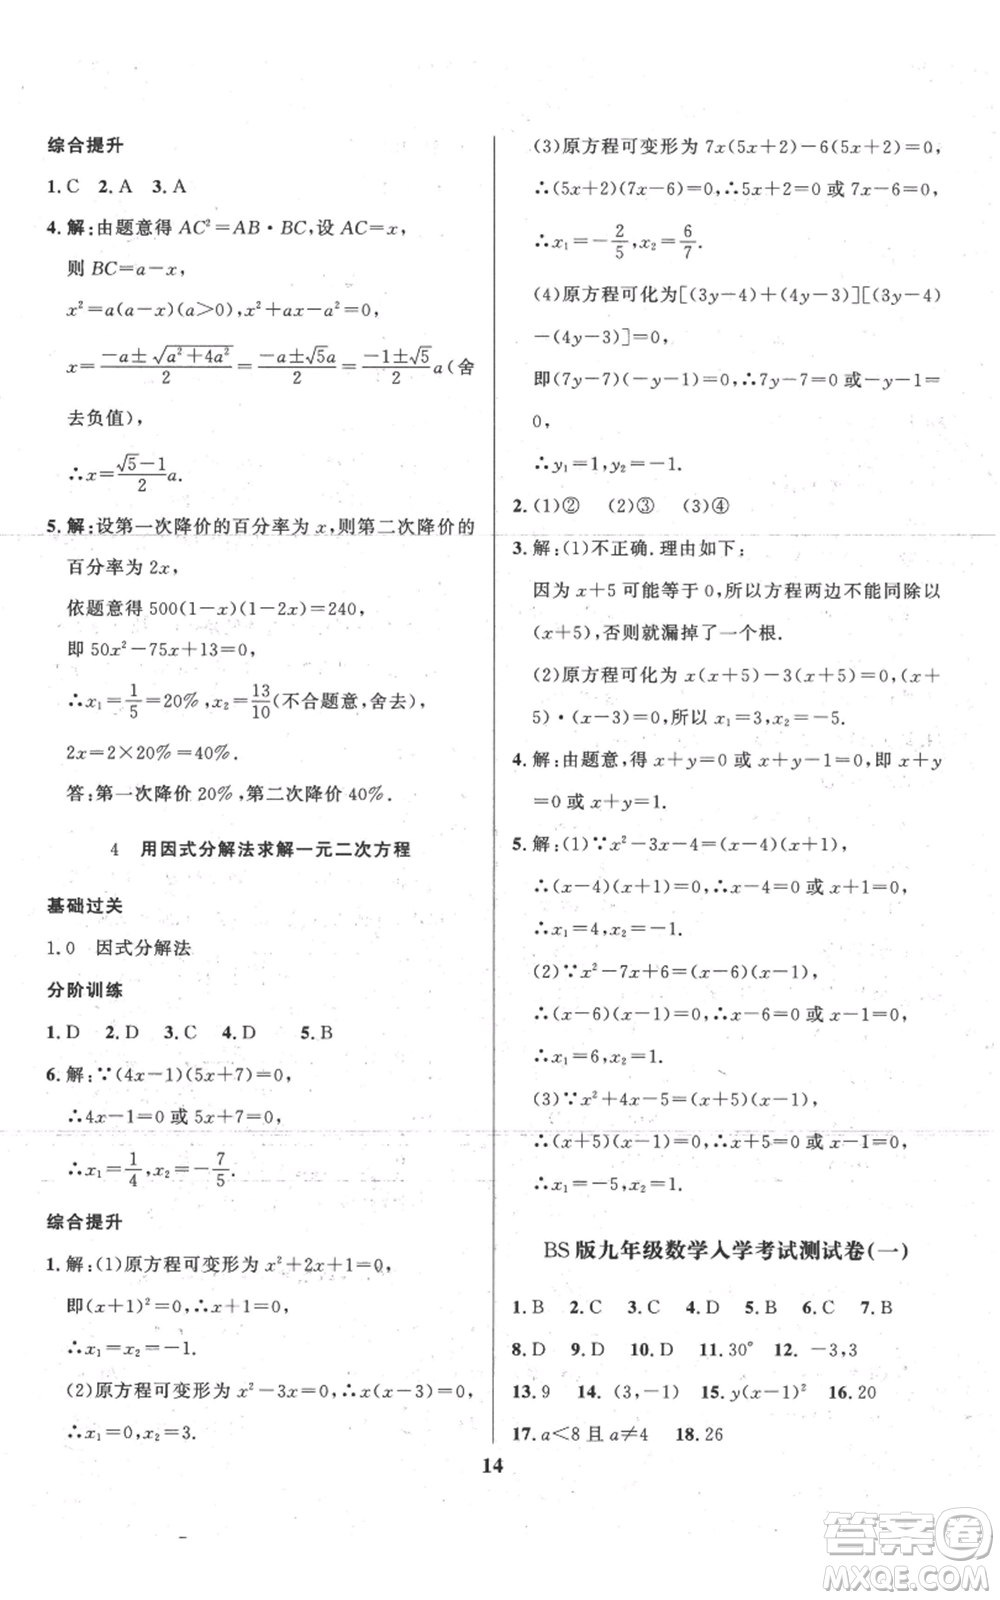 综合提升
1.C 2.A 3.A
4.解:由题意得 AC²=AB·BC,设 AC=x,
则 BC=a-x,
x²=a(a-x)(a>0),x²+ax-a²=0,
x=\frac{-a±\sqrt{a²+4a²}}{2}=\frac{-a±\sqrt{5}a}{2}=\frac{-1±\sqrt{5}}{2}a(舍
去负值),
∴x=\frac{\sqrt{5}-1}{2}a.
5.解:设第一次降价的百分率为 x,则第二次降价的
百分率为 2x,
依题意得 500(1-x)(1-2x)=240,
即 50x²-75x+13=0,
∴x₁=\frac{1}{5}=20%,x₂=\frac{13}{10}(不合题意,舍去),
2x=2×20%=40%.
答:第一次降价 20%,第二次降价 40%.
4 用因式分解法求解一元二次方程
基础过关
1.0 因式分解法
分阶训练
1.D 2.D 3.C 4.D 5.B
6.解:∵(4x-1)(5x+7)=0,
∴4x-1=0 或 5x+7=0,
∴x₁=\frac{1}{4},x₂=-\frac{7}{5}.
综合提升
1.解:(1)原方程可变形为 x²+2x+1=0,
即(x+1)²=0,∴x+1=0,
∴x₁=x₂=-1.
(2)原方程可变形为 x²-3x=0,∴x(x-3)=0,
∴x₁=0,x₂=3.
(3)原方程可变形为 7x(5x+2)-6(5x+2)=0,
∴(5x+2)(7x-6)=0,∴5x+2=0 或 7x-6=0,
∴x₁=-\frac{2}{5},x₂=\frac{6}{7}.
(4)原方程可化为[(3y-4)+(4y-3)][(3y-4)
-(4y-3)]=0,
即(7y-7)(-y-1)=0,∴7y-7=0 或-y-1=
0,
∴y₁=1,y₂=-1.
2.(1)② (2)③ (3)④
3.解:(1)不正确.理由如下:
因为 x+5 可能等于 0,所以方程两边不能同除以
(x+5),否则就漏掉了一个根.
(2)原方程可化为 x(x+5)-3(x+5)=0,(x+
5)·(x-3)=0,所以 x₁=3,x₂=-5.
4.解:由题意,得 x+y=0 或 x+y-1=0,即 x+y
=0 或 x+y=1.
5.解:(1)∵x²-3x-4=(x-4)(x+1),
∴(x-4)(x+1)=0,∴x-4=0 或 x+1=0,
∴x₁=4,x₂=-1.
(2)∵x²-7x+6=(x-6)(x-1),
∴(x-6)(x-1)=0,∴x-6=0 或 x-1=0,
∴x₁=6,x₂=1.
(3)∵x²+4x-5=(x+5)(x-1),
∴(x+5)(x-1)=0,∴x+5=0 或 x-1=0,
∴x₁=-5,x₂=1.
BS 版九年级数学入学考试测试卷(一)
1.B 2.C 3.C 4.D 5.D 6.C 7.B
8.D 9.D 10.D 11.30° 12.-3,3
13.9 14.(3,-1) 15.y(x-1)² 16.20
17.a<8 且 a≠4 18.26
14
答案圈
MXQE.COM